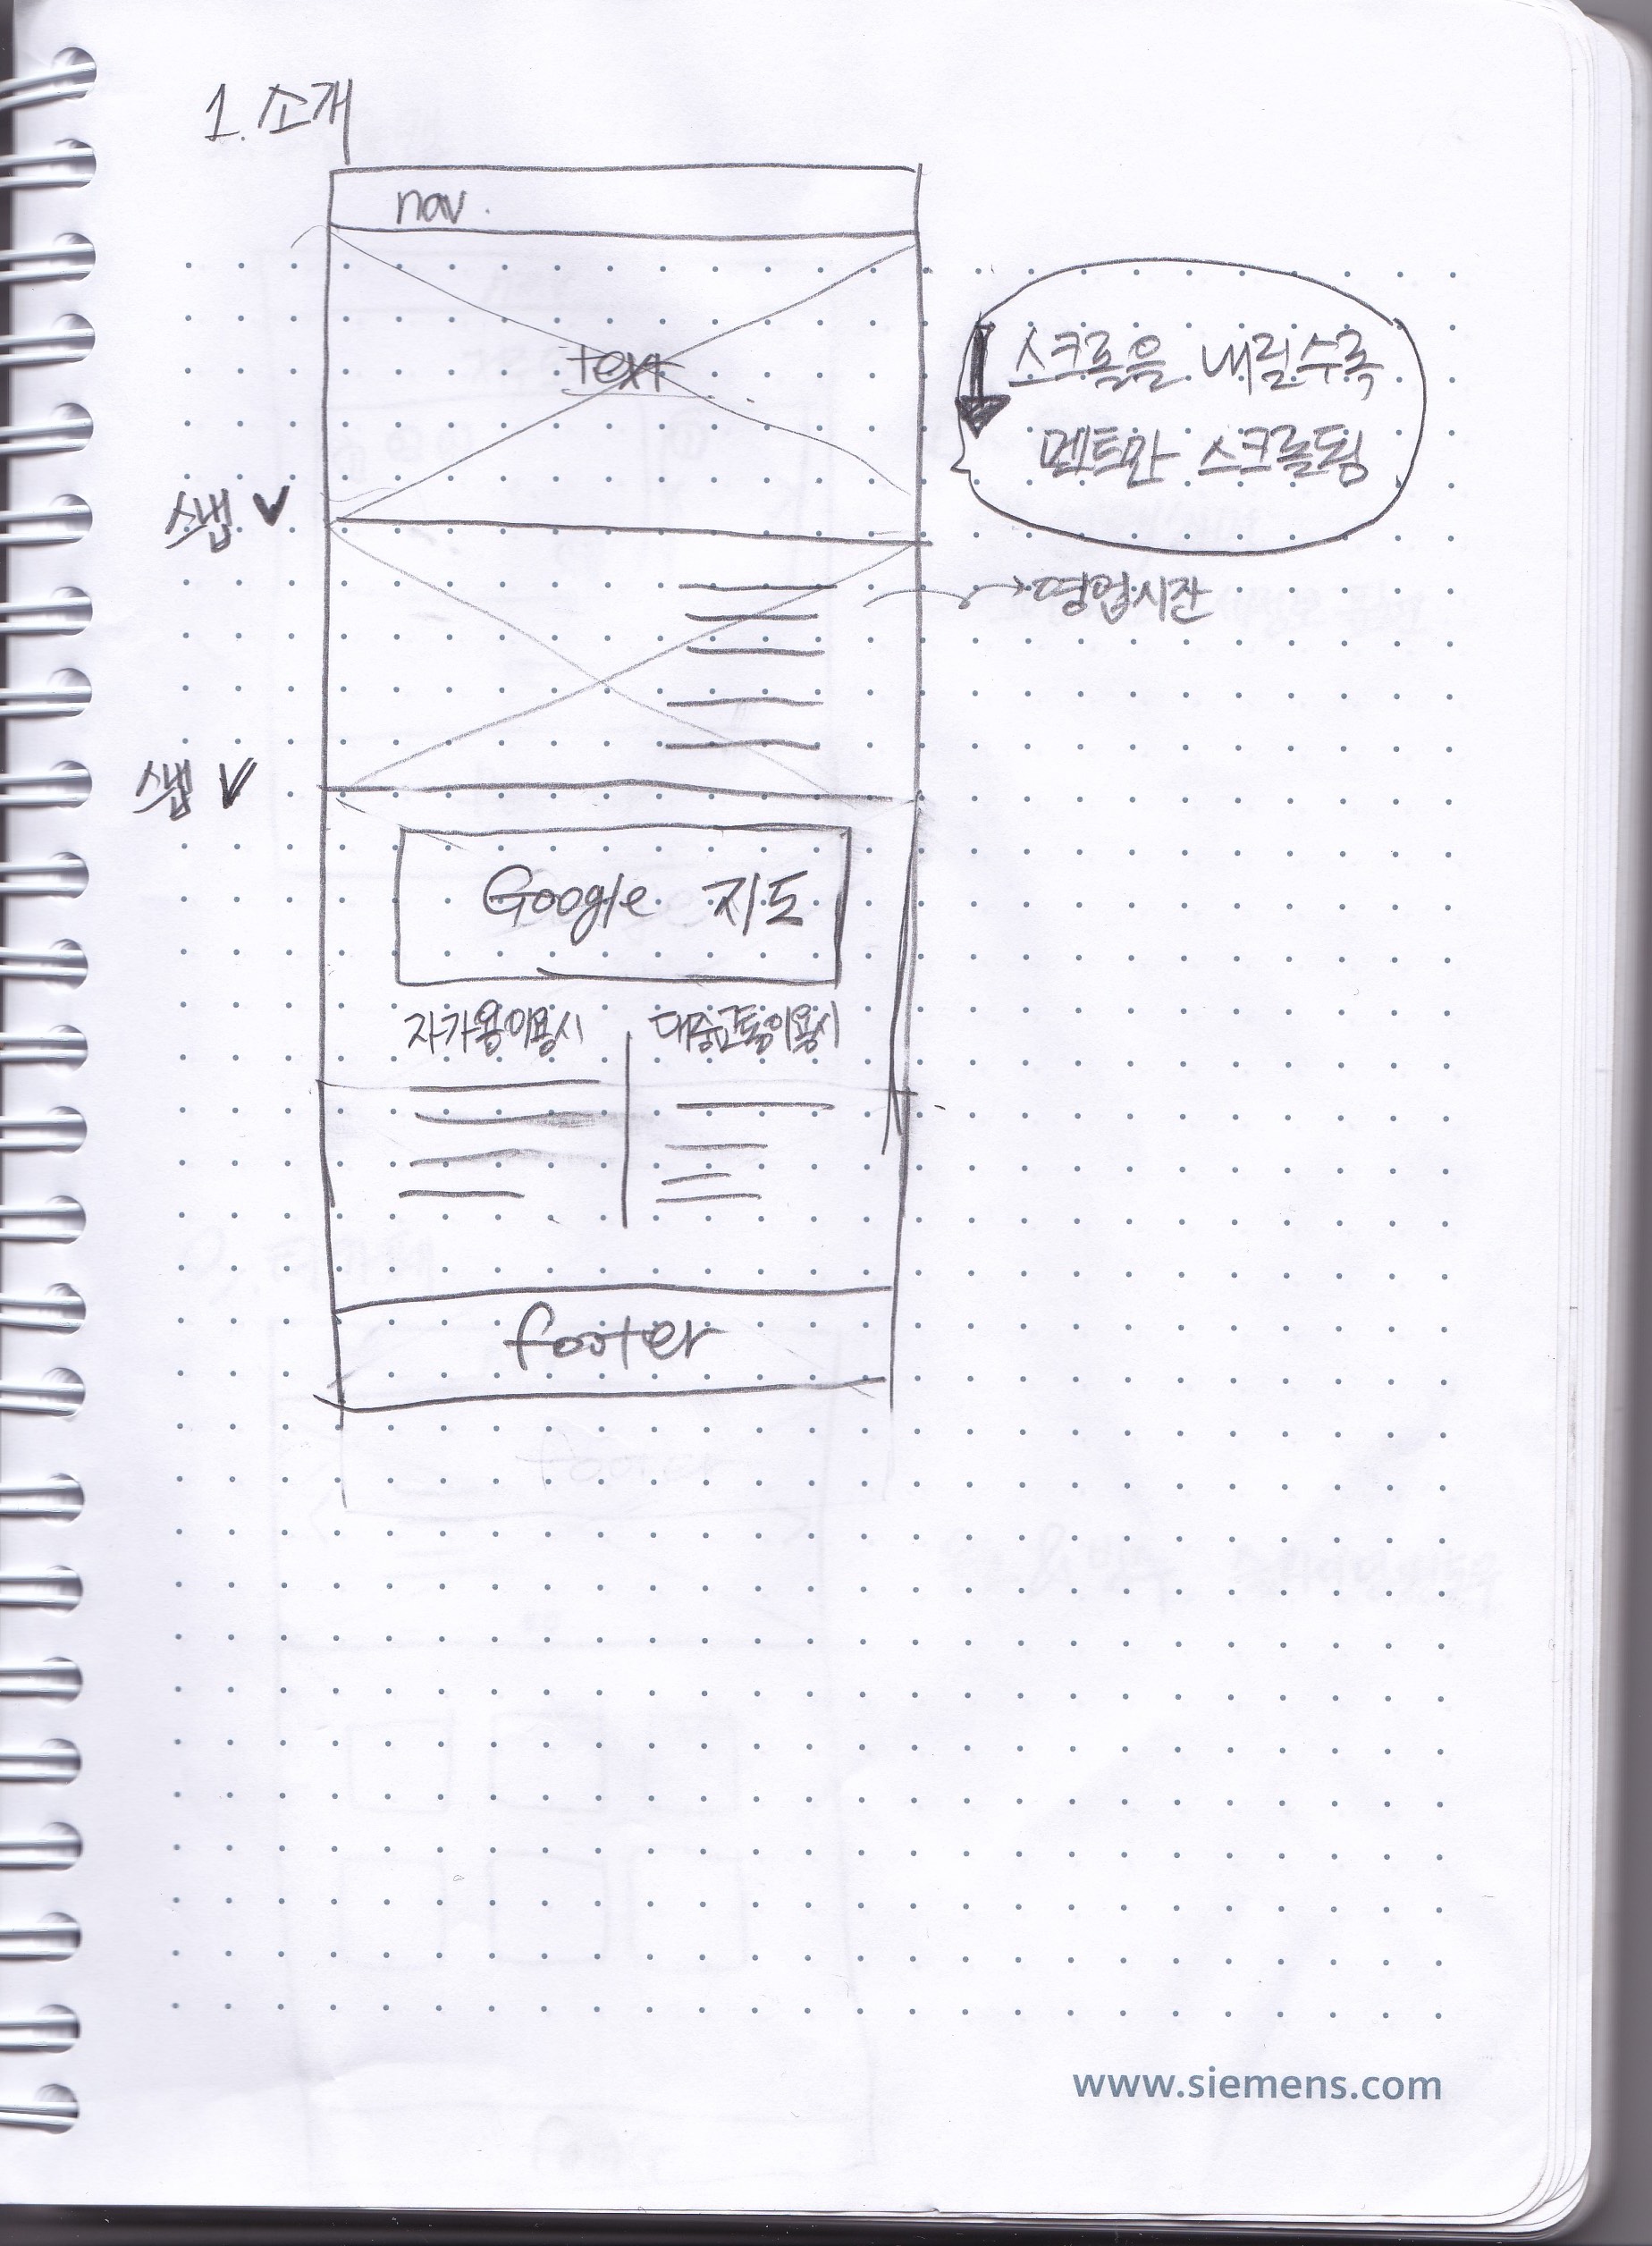 1. 소개
nav.
text
스크롤을 내릴수록
멘트만 스크롤됨
스냅 V
영업시간
스냅 V
Google 지도
자가용이용시
대중교통이용시
footer
www.siemens.com